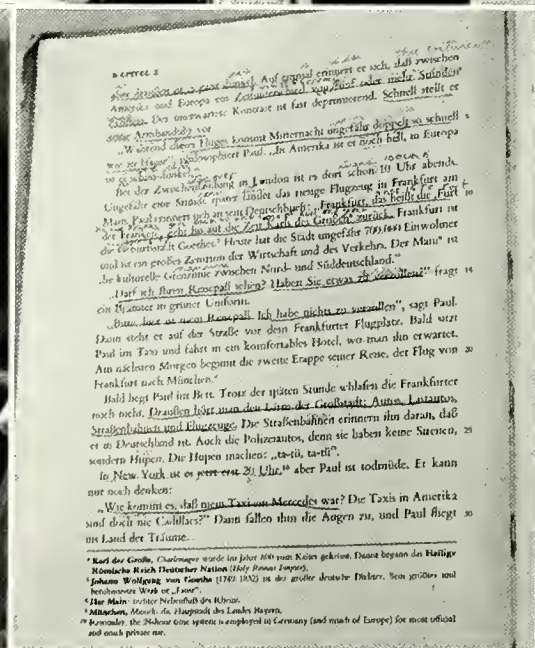 KAPITEL 2
Auf einmal erinnert er sich, daß zwischen
Amerika und Europa ein Zeitunterschied von fünf oder mehr Stunden
Der momentane Kontrast ist fast deprimierend. Schnell stellt er
seine Armbanduhr vor
„Während dieses Fluges kommt Mitternacht ungefähr doppelt so schnell 5
wie zu Hause", philosophiert Paul. „In Amerika ist es noch hell, in Europa
Bei der Zwischenlandung in London ist es dort schon 10 Uhr abends.
Ungefähr eine Stunde später landet das riesige Flugzeug in Frankfurt am
Main. Paul erinnert sich an sein Deutschbuch: „Frankfurt, das heißt die ‚Furt 10
der Franken‘, geht bis auf die Zeit Karls des Großen zurück. Frankfurt ist
die Geburtsstadt Goethes. Heute hat die Stadt ungefähr 700.000 Einwohner
und ist ein großes Zentrum der Wirtschaft und des Verkehrs. Der Main ist
die kulturelle Grenzlinie zwischen Nord- und Süddeutschland."
„Darf ich Ihren Reisepaß sehen? Haben Sie etwas zu verzollen?" fragt 15
ein Beamter in grüner Uniform.
„Bitte, hier ist mein Reisepaß. Ich habe nichts zu verzollen", sagt Paul.
Dann steht er auf der Straße vor dem Frankfurter Flugplatz. Bald sitzt
Paul im Taxi und fährt in ein komfortables Hotel, wo man ihn erwartet.
Am nächsten Morgen beginnt die zweite Etappe seiner Reise, der Flug von 20
Frankfurt nach München.
Bald liegt Paul im Bett. Trotz der späten Stunde schlafen die Frankfurter
noch nicht. Draußen hört man den Lärm der Großstadt: Autos, Lastautos,
Straßenbahnen und Flugzeuge. Die Straßenbahnen erinnern ihn daran, daß
er in Deutschland ist. Auch die Polizeiautos, denn sie haben keine Sirenen, 25
sondern Hupen. Die Hupen machen: „ta-tü, ta-tü".
In New York ist es jetzt erst 20 Uhr,¹⁰ aber Paul ist todmüde. Er kann
nur noch denken:
„Wie kommt es, daß mein Taxi ein Mercedes war? Die Taxis in Amerika
sind doch nie Cadillacs?" Dann fallen ihm die Augen zu, und Paul fliegt 30
ins Land der Träume.
Karl der Große, Charlemagne wurde im Jahre 800 zum Kaiser gekrönt. Damit begann das Heilige
Römische Reich Deutscher Nation (Holy Roman Empire).
Johann Wolfgang von Goethe (1749-1832) ist der größte deutsche Dichter. Sein größtes und
berühmtestes Werk ist „Faust".
Der Main: rechter Nebenfluß des Rheins.
München, Munich, die Hauptstadt des Landes Bayern.
¹⁰ Remember, the 24-hour time system is employed in Germany (and much of Europe) for most official
and much private use.